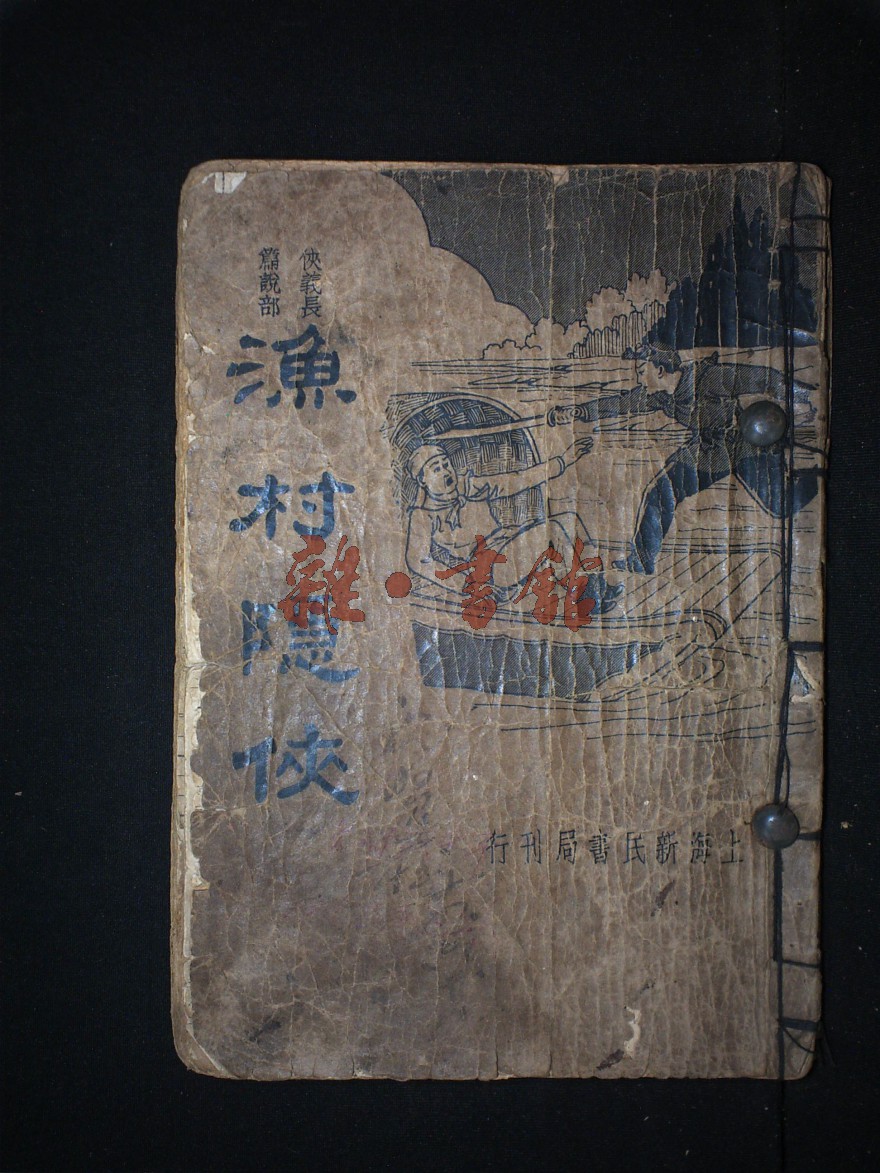 俠義長
篇說部
漁村隱俠
上海新民書局刊行
雜·書館